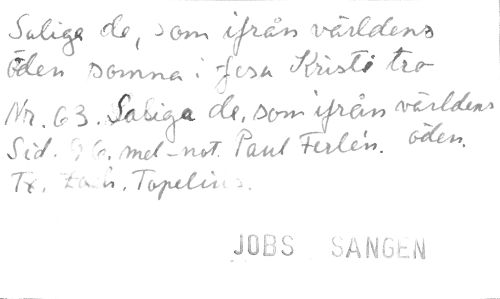 Saliga de, som ifrån världens
öden somna i Jesu Kristi tro
Nr. 63. Saliga de, som ifrån världens
öden.
Sid. 96. mel-not. Paul Ferlén.
Tx. Zach. Topelius.
JOBS SANGEN